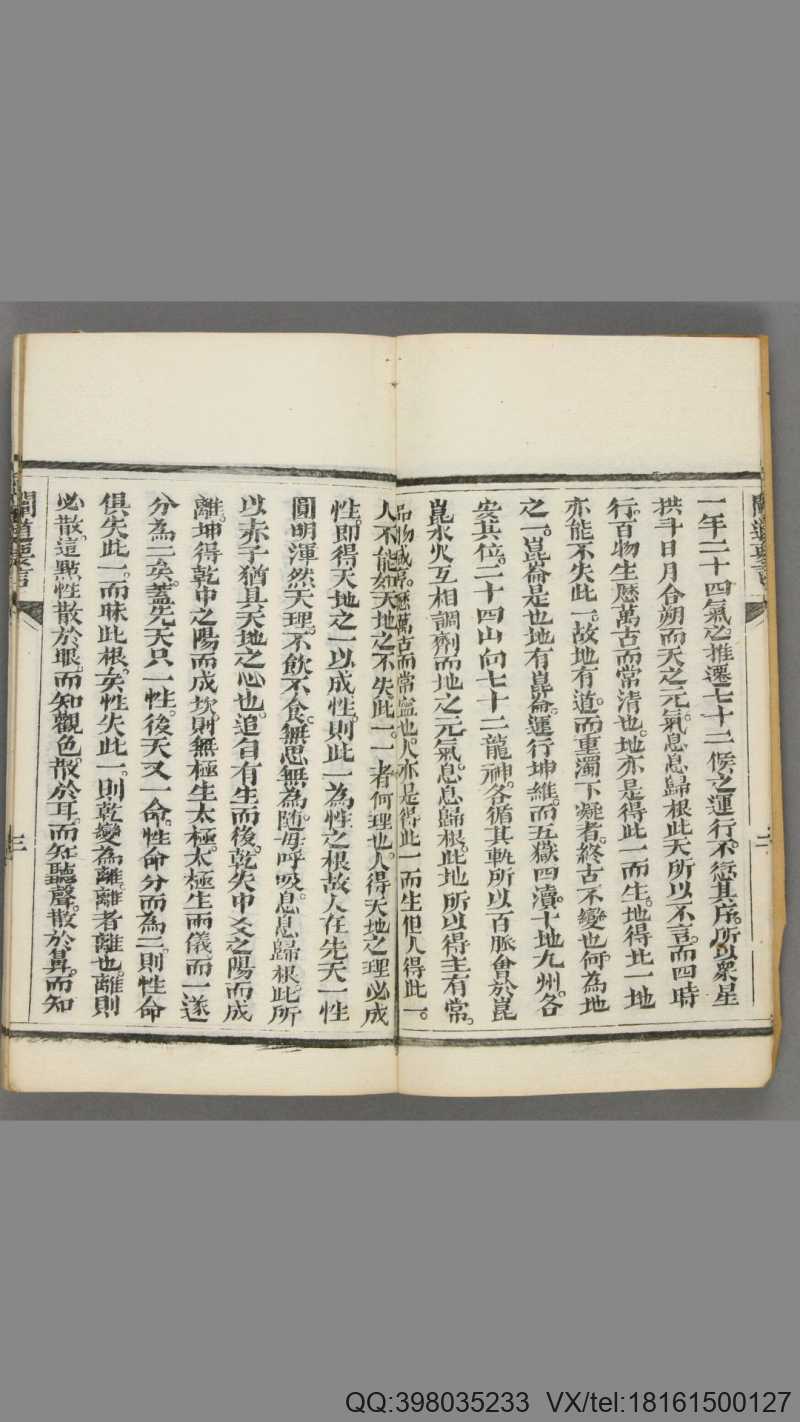 一年二十四氣之推遷七十二候之運行不愆其序所以衆星
拱斗日月合朔而天之元氣息息歸根此天所以不言而四時
行百物生歷萬古而常清也地亦是得此一而生地得此一地
亦能不失此一故地有道而重濁下凝者終古不變也何為地
之一崑崙是也地有崑崙運行坤維而五嶽四瀆十地九州各
安其位二十四山向七十二龍神各循其軌所以百脈會於崑
崑水火互相調劑而地之元氣息息歸根此地所以得主有常
品物咸亨歷萬古而常寍也人亦是得此一而生但人得此一
人不能如天地之不失此一一者何理也人得天地之理必成
性即得天地之一以成性則此一為性之根故人在先天一性
圓明渾然天理不飲不食無思無為随母呼吸息息歸根此所
以赤子猶具天地之心也追自有生而後乾失中爻之陽而成
離坤得乾中之陽而成坎則無極生太極太極生兩儀而一遂
分為二矣蓋先天只一性後天又一命性命分而為二則性命
俱失此一而昧此根矣性失此一則乾變為離離者離也離則
必散這點性散於眼而知觀色散於耳而知聽聲散於鼻而知
闡道要言
三